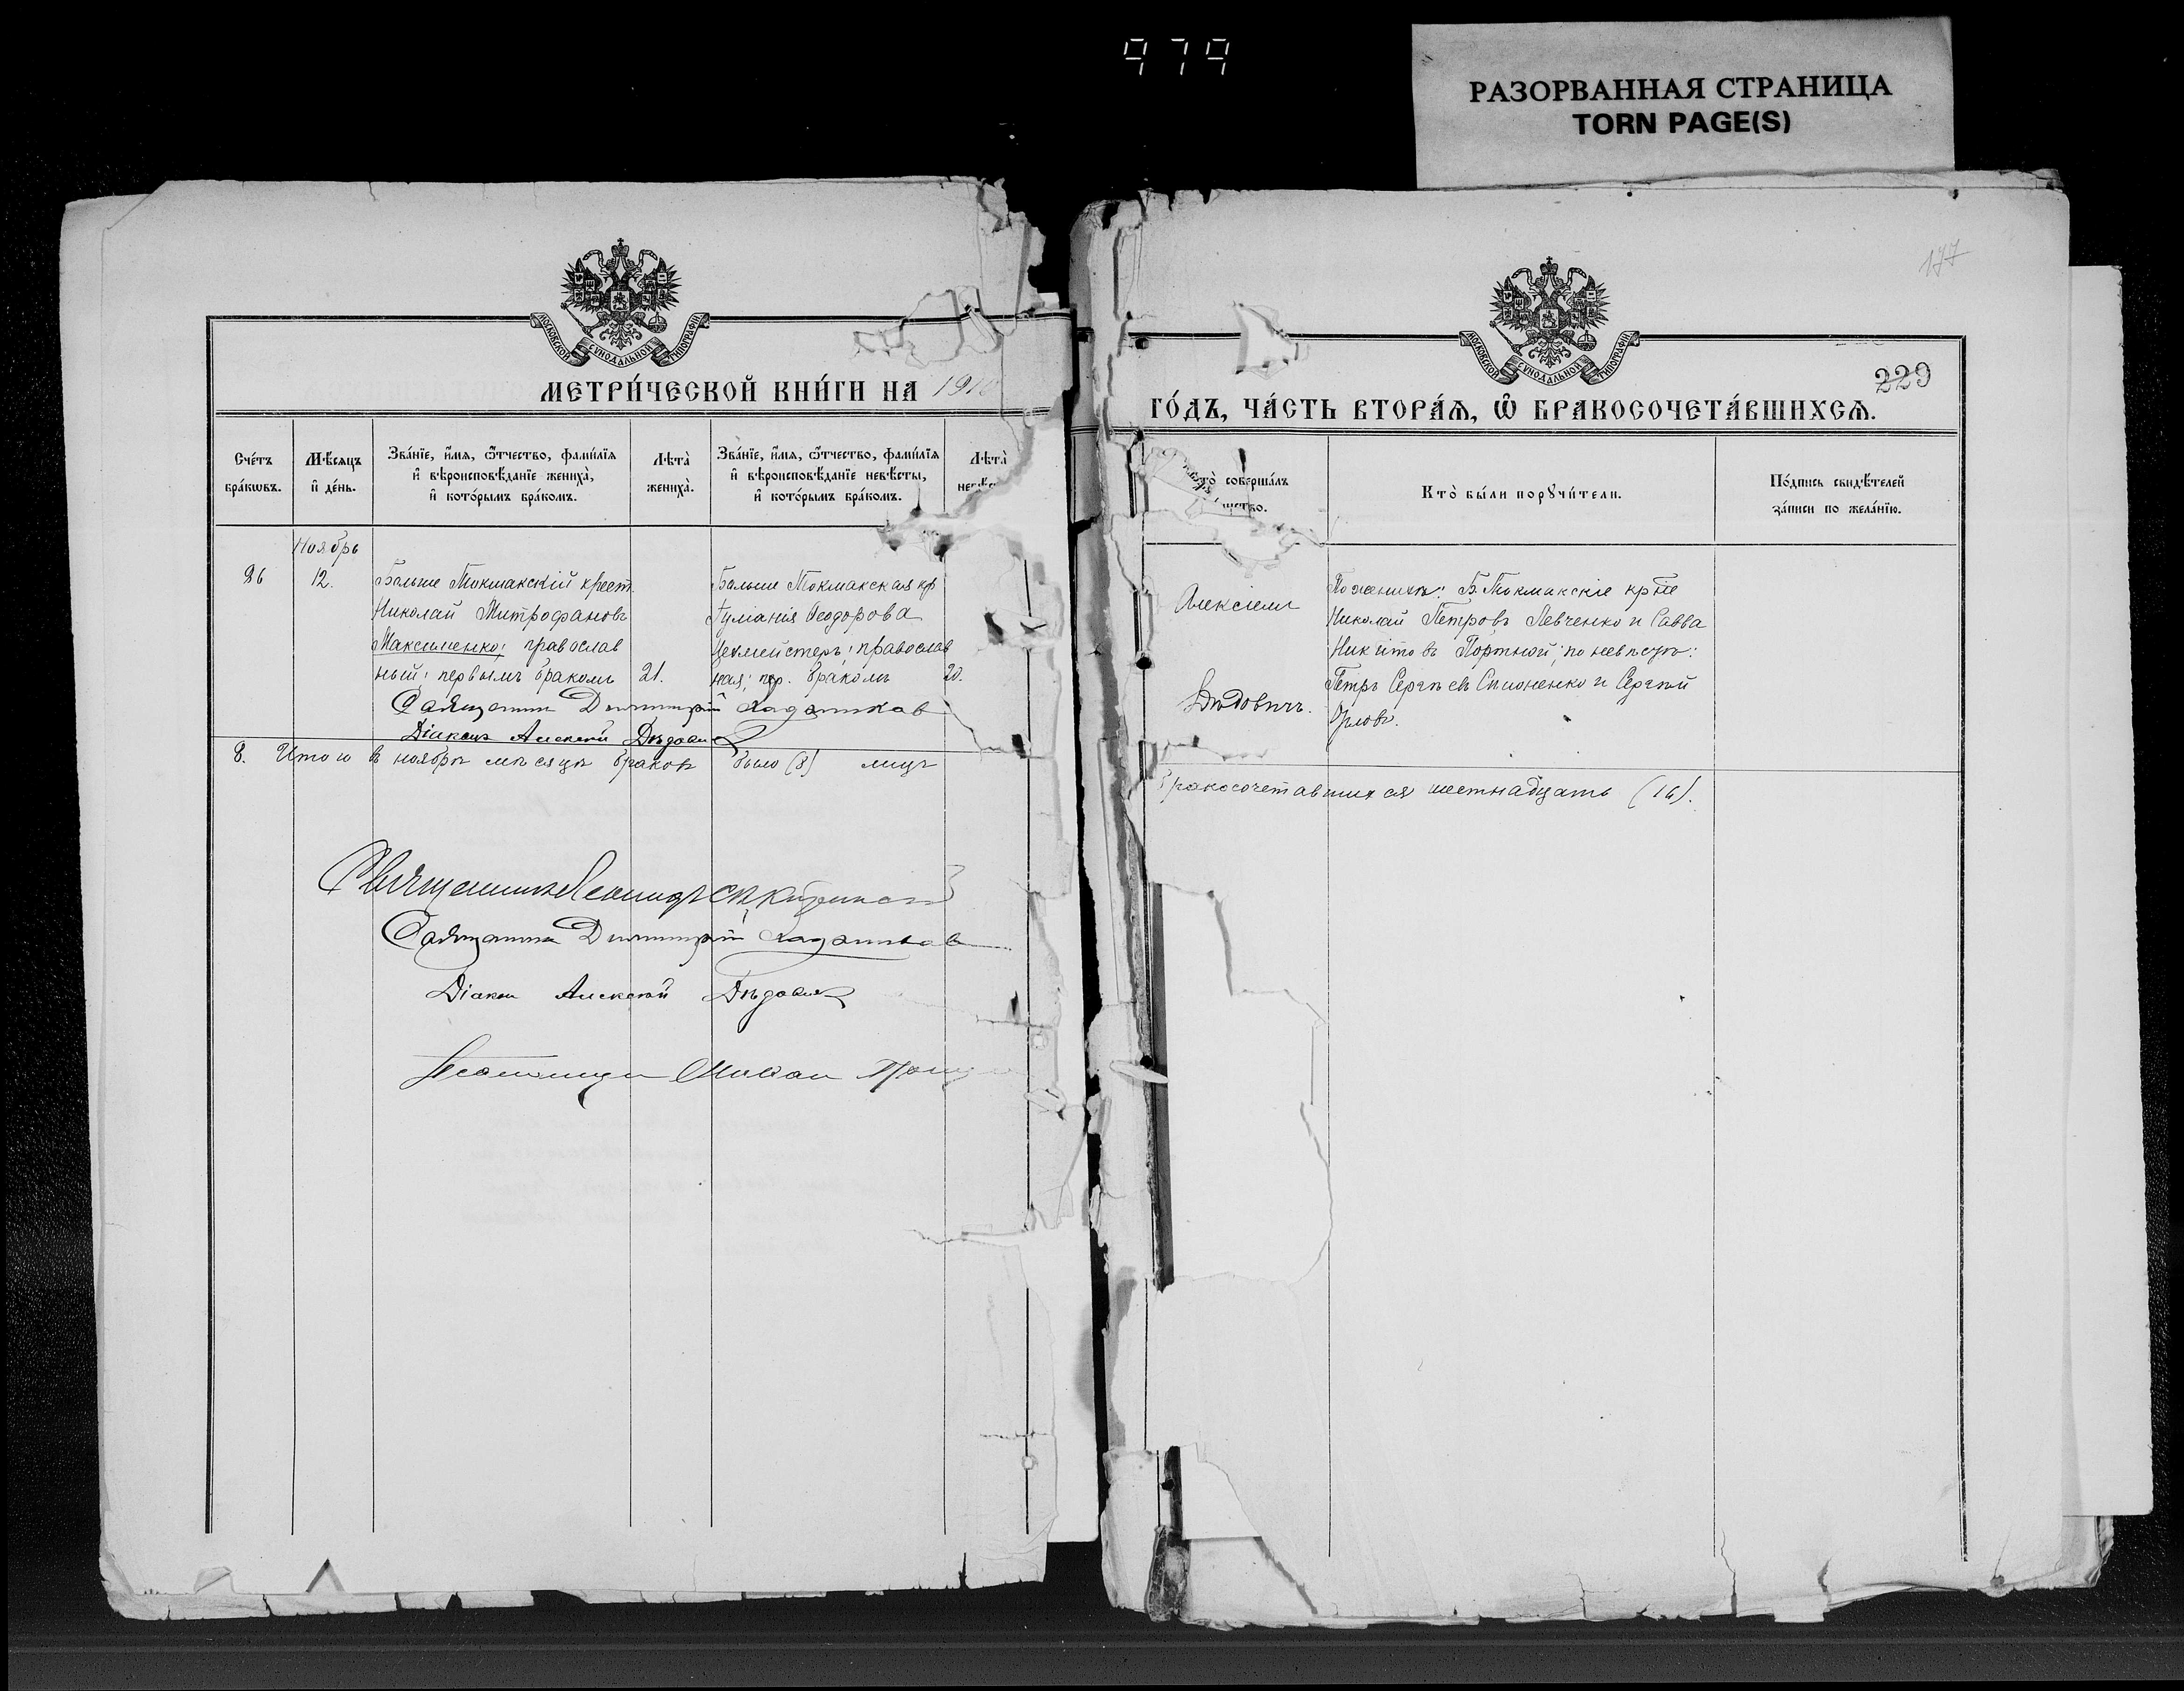 979
РАЗОРВАННАЯ СТРАНИЦА
TORN PAGE(S)
МОСКОВСКОЙ СѴНОДАЛЬНОЙ ТИПОГРАФІИ
МЕТРИ́ЧЕСКОЙ КНИ́ГИ НА 1910
Сче́тъ бра́кѡвъ.
Мѣ́сяцъ и҆ де́нь.
Зва́нїе, и҆́мя, ѻ҆́тчество, фами́лїя
и҆ вѣроисповѣ́данїе жениха̀,
и҆ кото́рымъ бра́комъ.
Лѣта̀ жениха̀.
Зва́нїе, и҆́мя, ѻ҆́тчество, фами́лїя
и҆ вѣроисповѣ́данїе невѣ́сты,
и҆ кото́рымъ бра́комъ.
Лѣта̀
Ноябрь
26
12.
Больше Токмакскій крест.
Николай Митрофановъ
Максименко; православ
ный; первымъ бракомъ
21.
Больше Токмакская кр
Ѳеодорова
православ
ная; пер. бракомъ
20.
Священникъ Димитрій
Діаконъ Алексѣй Дѣдович
8. Итого в ноябрѣ мѣсяцѣ браковъ было (8) лицъ
Священникъ Леонидъ
Священникъ Димитрій
Діаконъ Алексѣй Дѣдович
Псаломщикъ
177
МОСКОВСКОЙ СѴНОДАЛЬНОЙ ТИПОГРАФІИ
229
ГО́ДЪ, ЧА́СТЬ ВТОРА́Я, Ѽ БРАКОСОЧЕТА́ВШИХСЯ.
соверша́лъ
Кто̀ бы́ли порꙋчи́тели.
По́дпись свидѣ́телей
за́писи по жела́нїю.
Алексіемъ
Дѣдовичъ.
По женихѣ: Б. Токмакскіе кр‑не
Николай Петровъ Левченко и Савва
Никитовъ Портной; по невѣстѣ:
Петръ Сергѣевъ Симоненко и Сергѣй
Орловъ.
бракосочетавшихся шестнадцать (16).